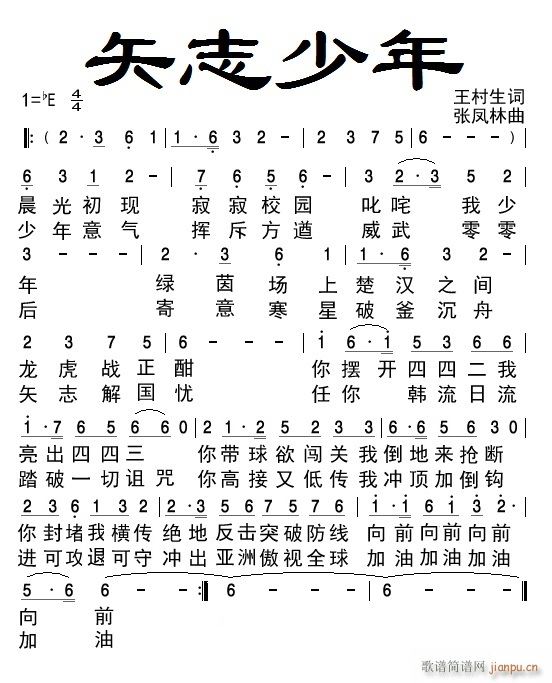 矢志少年
1=♭E 4/4
王村生词
张凤林曲
‖: ( 2·3 6 1 | 1·6 3 2 - | 2·3 7 5 | 6 - - - ) |
6 3 1 2 - | 7 6 5 6 - | 3 2·3 5 2
晨光初现 寂寂校园 叱咤 我少
少年意气 挥斥方遒 威武 零零
3 - - - | 2·3 6 1 | 1·6 3 2 - |
年 绿茵场上楚汉之间
后 寄意寒星破釜沉舟
2 3 7 5 | 6 - - - | 1 6·1 5 3 6 6
龙虎战正酣 你摆开四四二我
矢志解国忧 任你 韩流日流
1·7 6 6 5 6 6 0 | 2 1·2 5 2 3 3 | 6·6 5 6 5 3 0 |
亮出四四三 你带球欲闯关我倒地来抢断
踏破一切诅咒 你高接又低传我冲顶加倒钩
2 3 6 1 6 2 | 2·3 5 6 7 5 6 | 1·1 6 1 2 3 2·
你封堵我横传 绝地反击突破防线 向前向前向前
进可攻退可守 冲出亚洲傲视全球 加油加油加油
5·6 6 - | 6 - - :‖ 6 - - - | 6 - - - ‖
向 前
加 油
歌谱简谱网
jianpu.cn